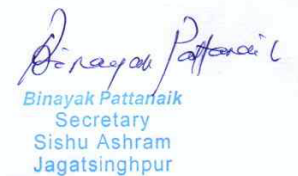 Binayak Pattanaik
Binayak Pattanaik
Secretary
Sishu Ashram
Jagatsinghpur